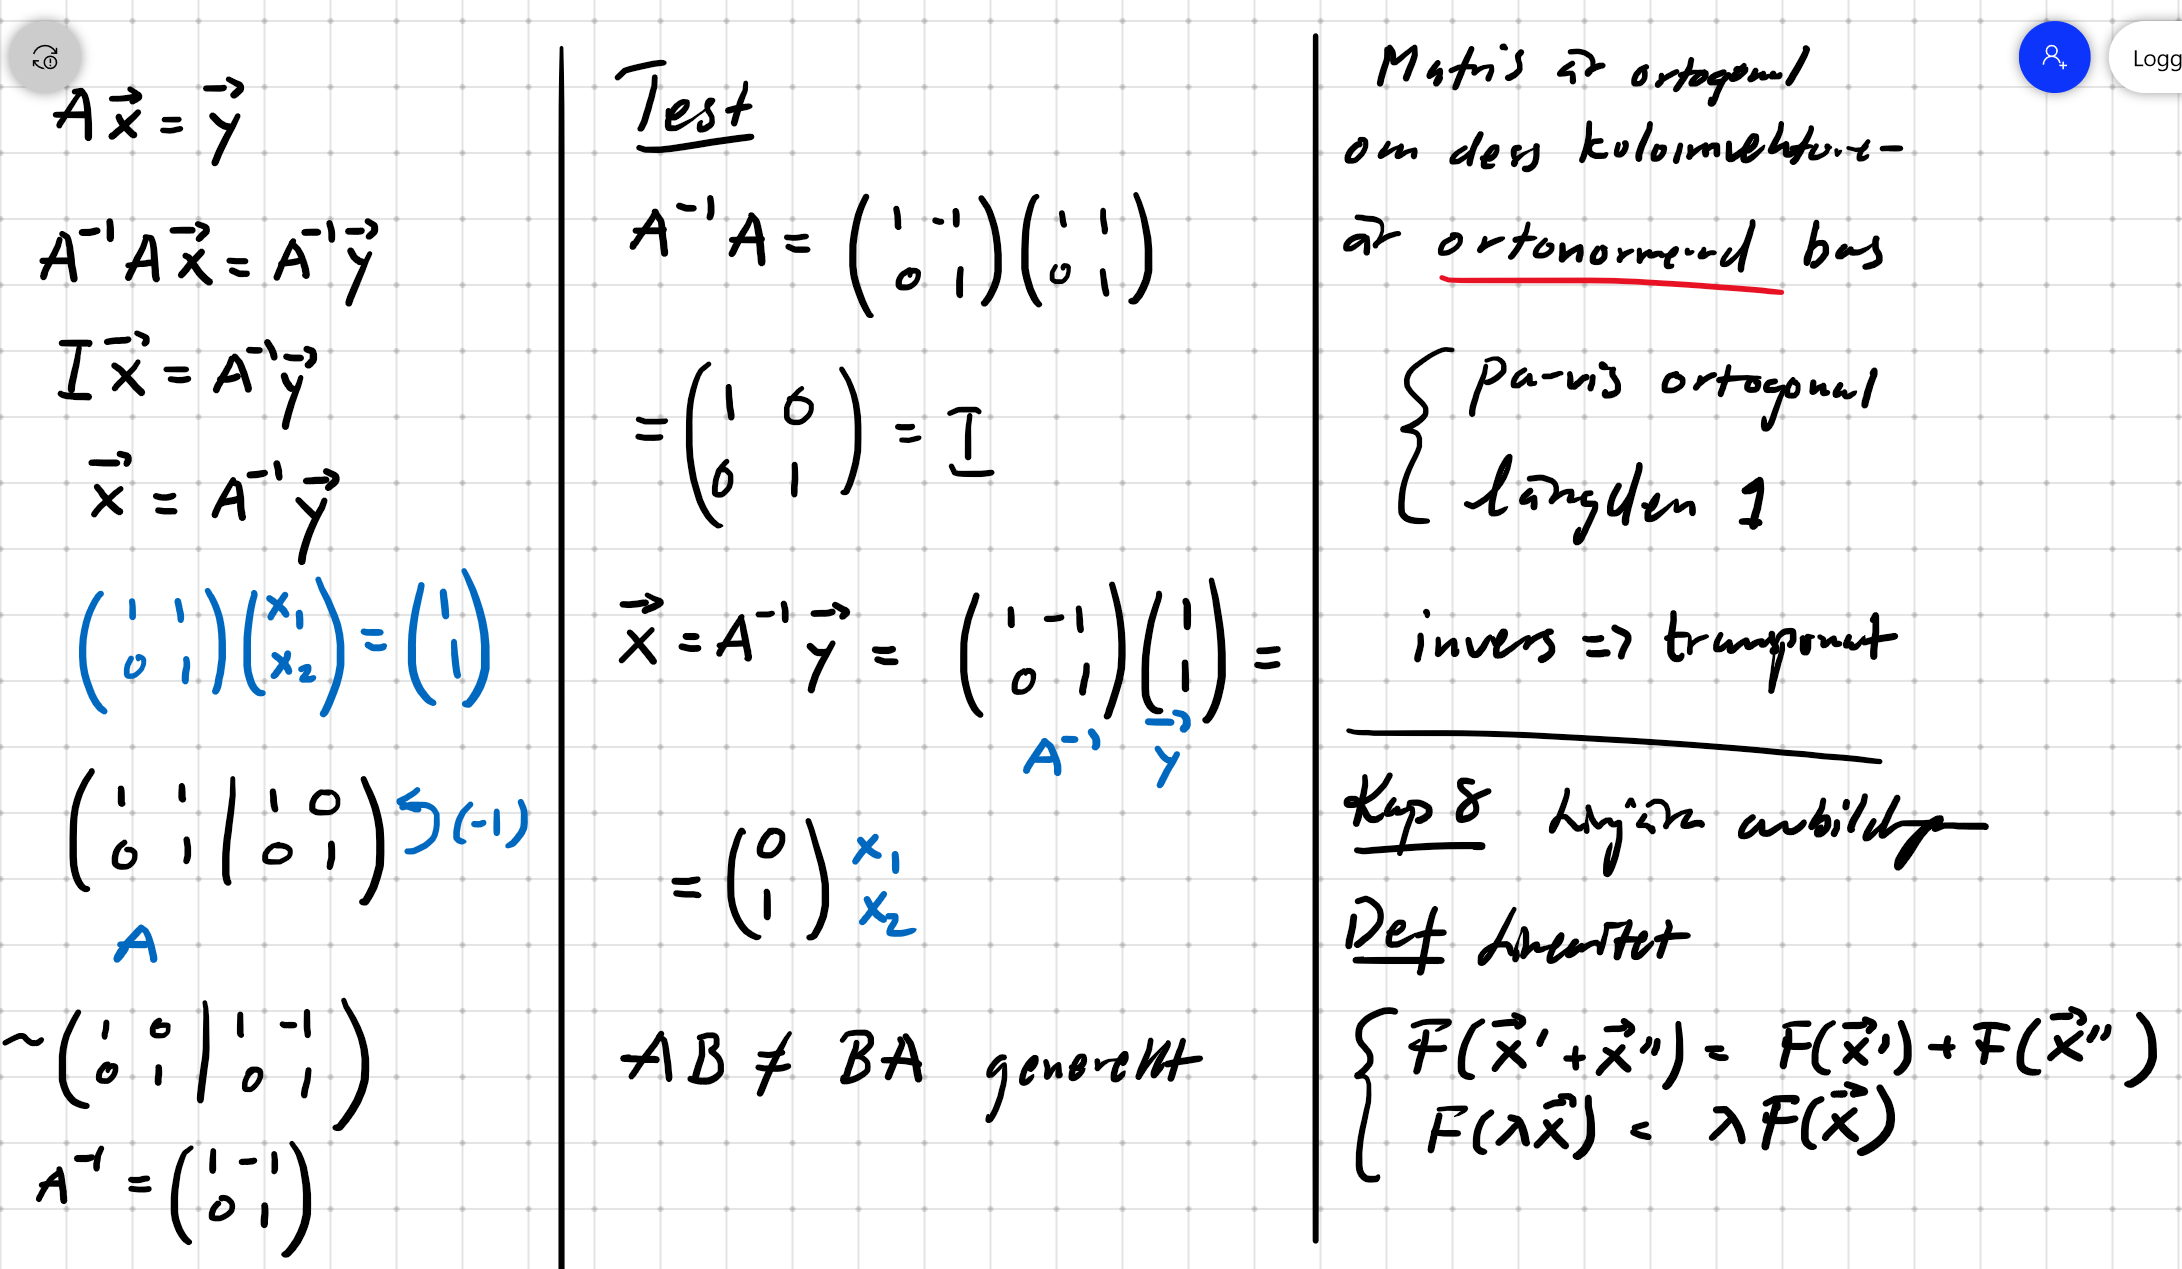 A x⃗ = y⃗
A⁻¹ A x⃗ = A⁻¹ y⃗
I x⃗ = A⁻¹ y⃗
x⃗ = A⁻¹ y⃗
(1 1; 0 1) (x₁; x₂) = (1; 1)
(1 1 | 1 0; 0 1 | 0 1) ↰ (-1)
A
~ (1 0 | 1 -1; 0 1 | 0 1)
A⁻¹ = (1 -1; 0 1)
Test
A⁻¹ A = (1 -1; 0 1) (1 1; 0 1)
= (1 0; 0 1) = I
x⃗ = A⁻¹ y⃗ = (1 -1; 0 1) (1; 1) =
A⁻¹ y⃗
= (0; 1) x₁ x₂
AB ≠ BA generellt
Matris är ortogonal
om dess kolonnvektorer
är ortonormerad bas
{ parvis ortogonal
längden 1
invers => transponat
Kap 8 Linjära avbildningar
Def Linearitet
{ F(x⃗' + x⃗'') = F(x⃗') + F(x⃗'')
F(λx⃗) = λ F(x⃗)
Logg